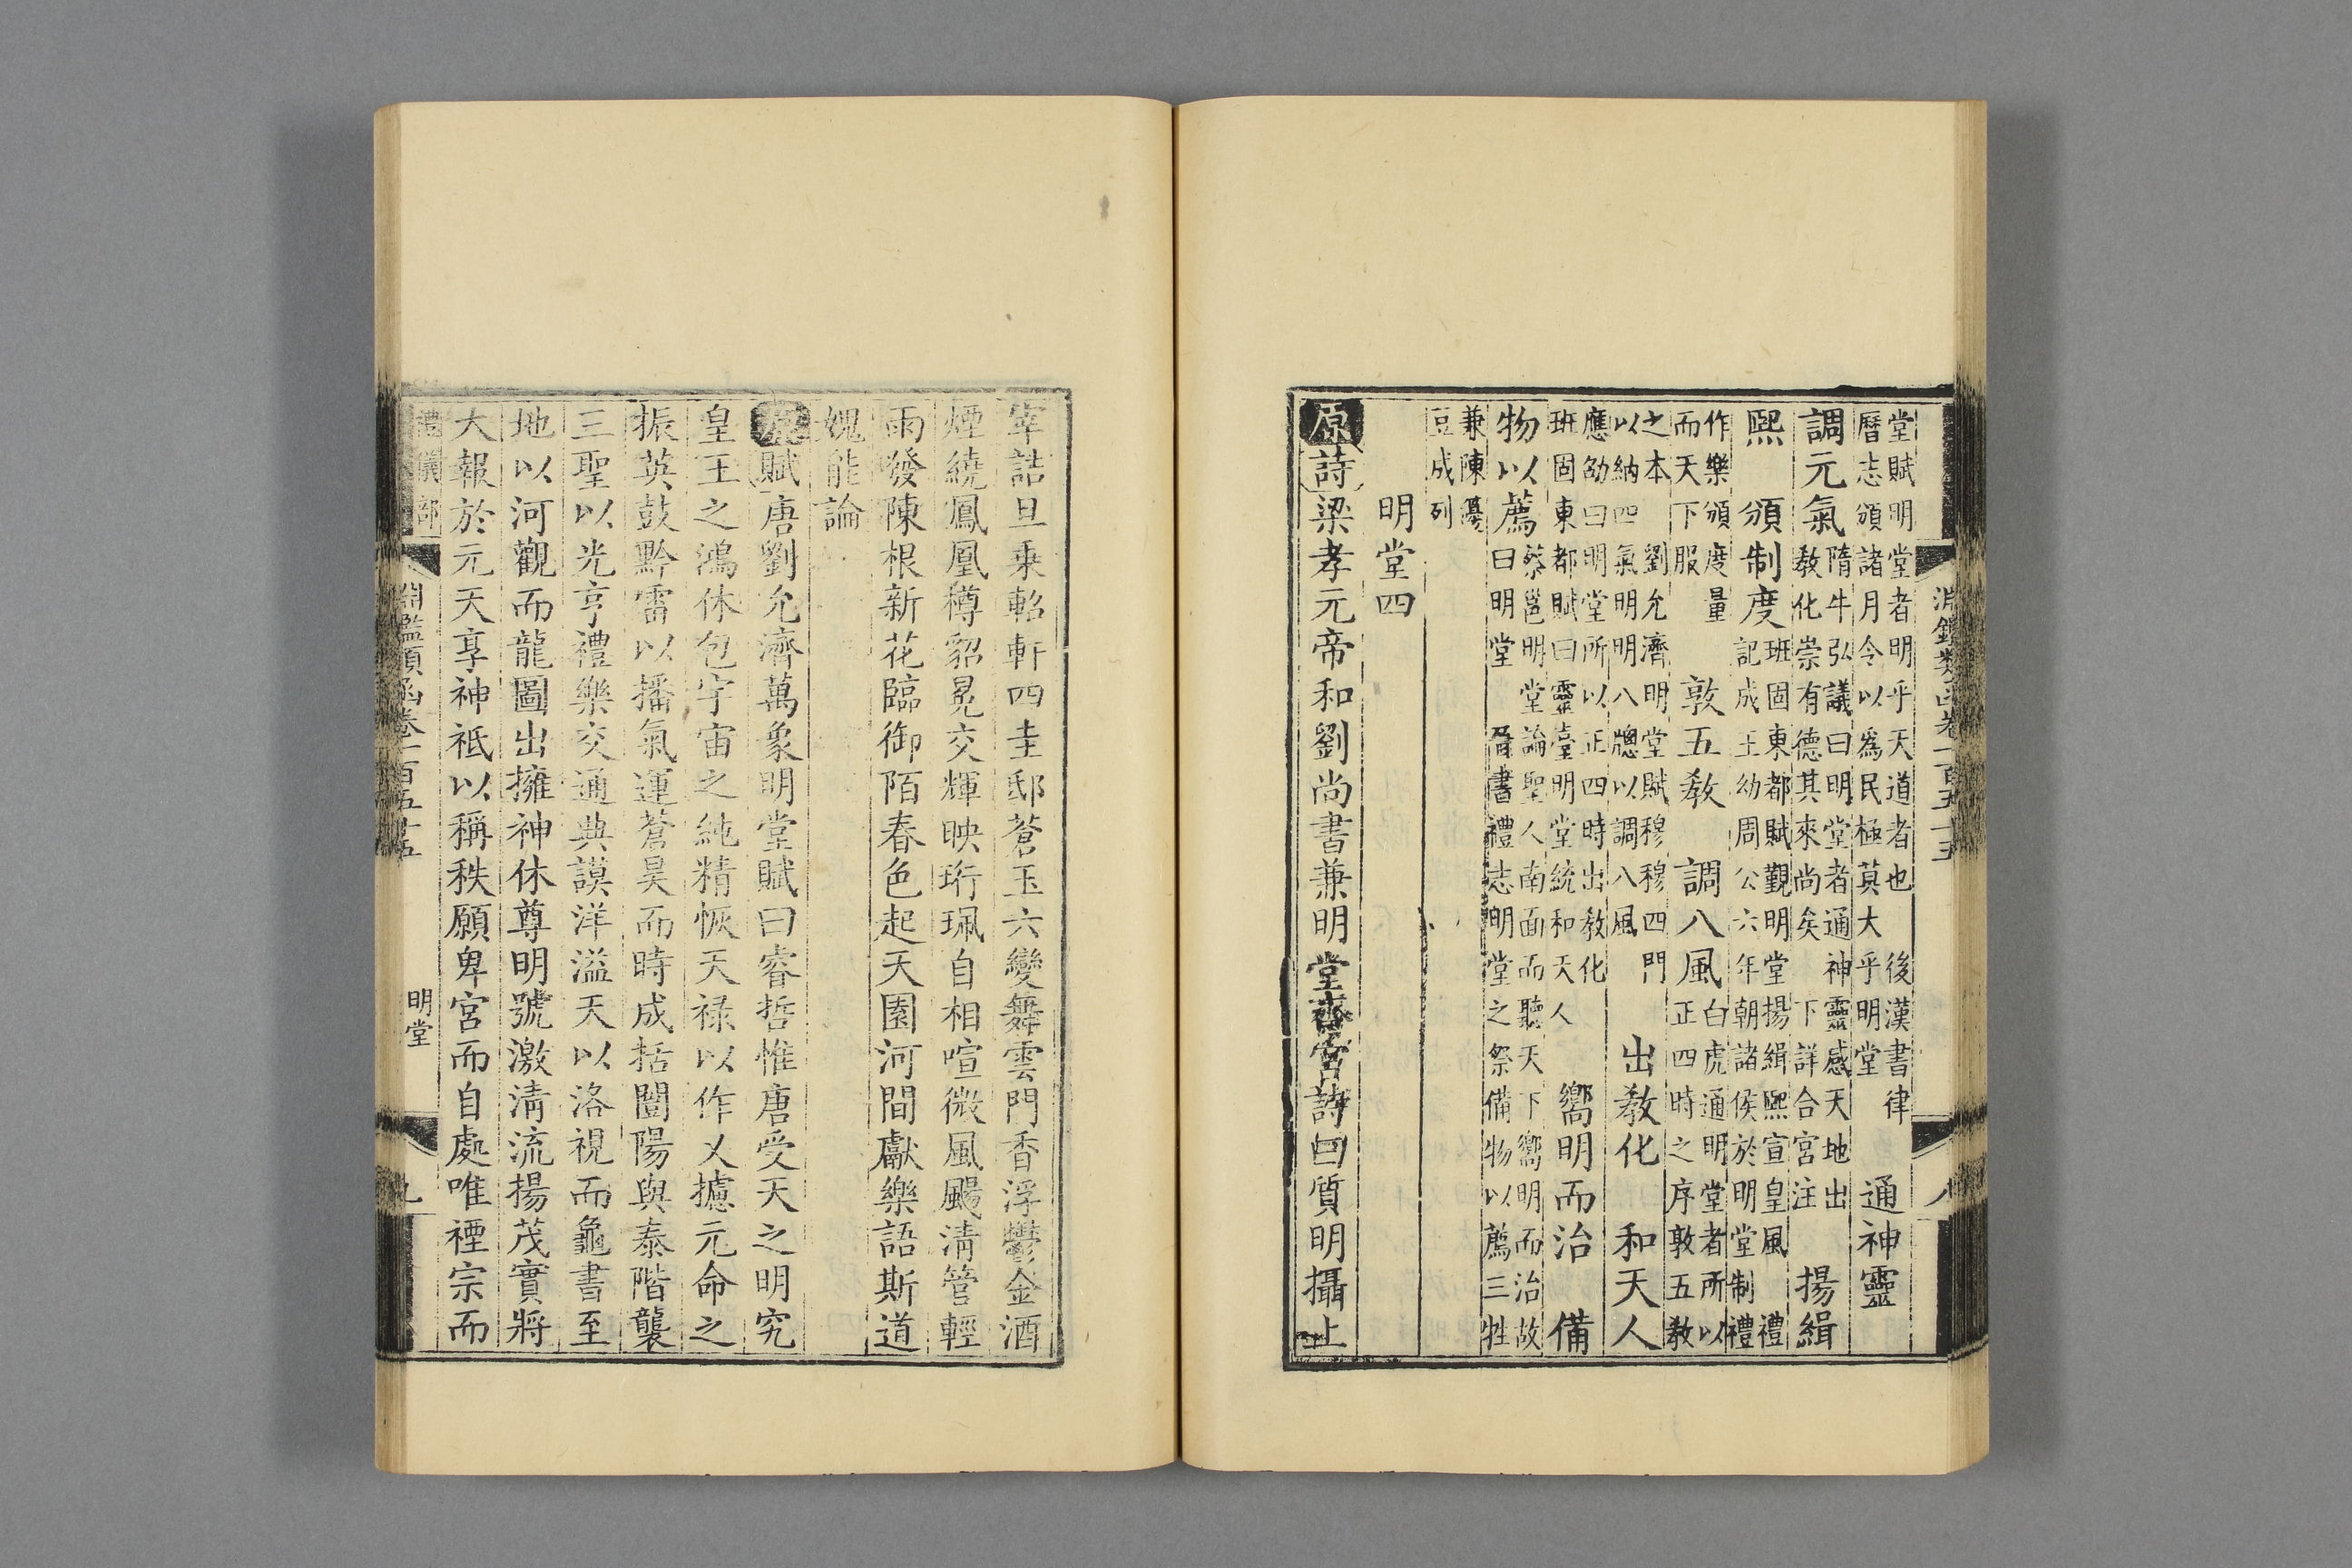 淵鑑類函卷一百五十五 八
堂賦明堂者明乎天道者也 後漢書律
曆志頒諸月令以爲民極莫大乎明堂
通神靈
調元氣
隋牛弘議曰明堂者通神靈感天地出
教化崇有德其來尚矣 下詳合宮注
揚緝
熙 頒制度
班固東都賦覲明堂揚緝熙宣皇風 禮
記成王幼周公六年朝諸侯於明堂制禮
作樂頒度量
而天下服
敦五教 調八風
白虎通明堂者所以
正四時之序敦五教
之本 劉允濟明堂賦穆穆四門
以納四氣明明八牕以調八風
出教化 和天人
應劭曰明堂所以正四時出教化
班固東都賦曰靈臺明堂統和天人
嚮明而治 備
物以薦
蔡邕明堂論聖人南面而聽天下嚮明而治故
曰明堂 晉書禮志明堂之祭備物以薦三牲
兼陳籩
豆成列
明堂四
原詩梁孝元帝和劉尚書兼明堂齋宮詩曰質明攝上
宰詰旦乗軺軒四圭邸蒼玉六變舞雲門香浮鬱金酒
煙繞鳳凰樽貂冕交輝映珩珮自相喧微風颺清管輕
雨發陳根新花臨御陌春色起天園河間獻樂語斯道
媿能論
原賦唐劉允濟萬象明堂賦曰睿哲惟唐受天之明究
皇王之鴻休包宇宙之純精恢天禄以作乂攄元命之
振英鼓黔雷以播氣運蒼昊而時成括闓陽與泰階襲
三聖以光亨禮樂交通典謨洋溢天以洛視而龜書至
地以河觀而龍圖出擁神休尊明號激清流揚茂實將
大報於元天享神祗以稱秩願卑宮而自處唯禋宗而
禮儀部 淵鑑類函卷一百五十五 明堂 九